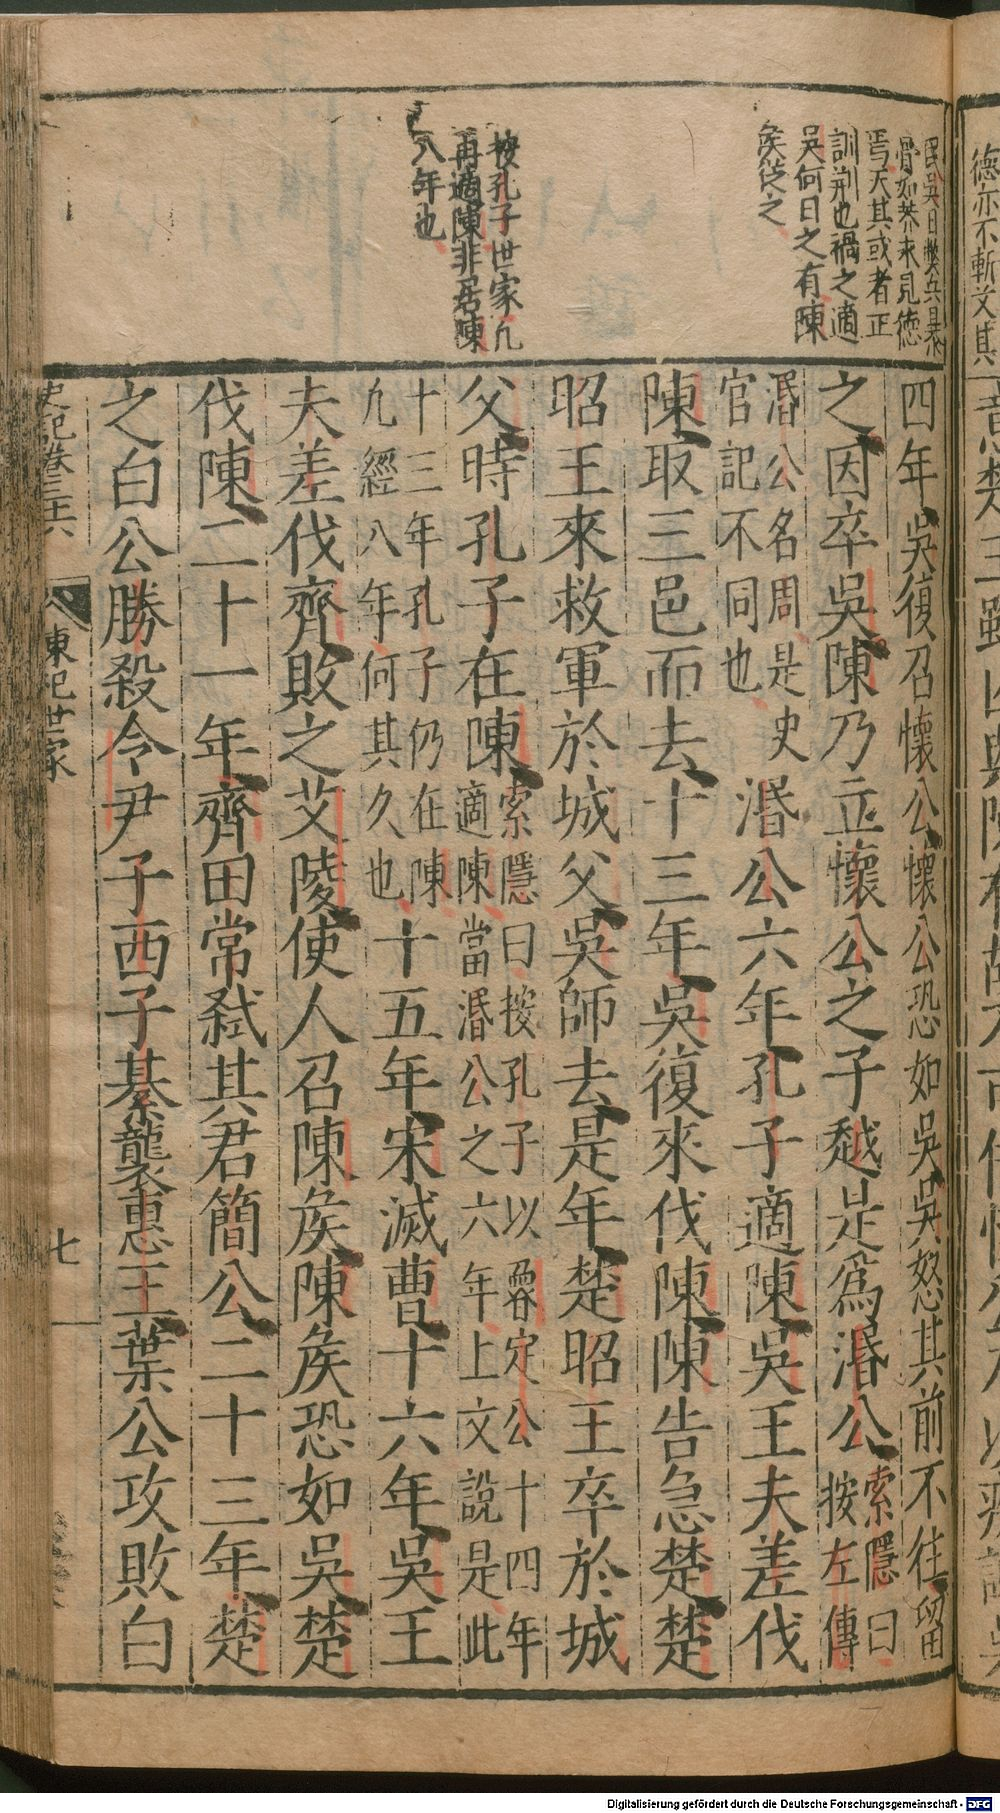 民吳日敝兵暴
骨如莽未見德
焉天其或者正
訓荊也禍之適
吳何日之有陳
侯從之
按孔子世家凡
再適陳非居陳
八年也
四年吳復召懷公懷公恐如吳吳怒其前不往留
之因卒吳陳乃立懷公之子越是為湣公索隱曰按左傳
湣公名周是史官記不同也湣公六年孔子適陳吳王夫差伐
陳取三邑而去十三年吳復來伐陳陳告急楚楚
昭王來救軍於城父吳師去是年楚昭王卒於城
父時孔子在陳索隱曰按孔子以魯定公十四年適陳當湣公之六年上文說是此
十三年孔子仍在陳九經八年何其久也十五年宋滅曹十六年吳王
夫差伐齊敗之艾陵使人召陳侯陳侯恐如吳楚
伐陳二十一年齊田常弒其君簡公二十三年楚
之白公勝殺令尹子西子綦襲惠王葉公攻敗白
史記卷三十六
陳杞世家
七
德亦不斬文其
Digitalisierung gefördert durch die Deutsche Forschungsgemeinschaft - DFG